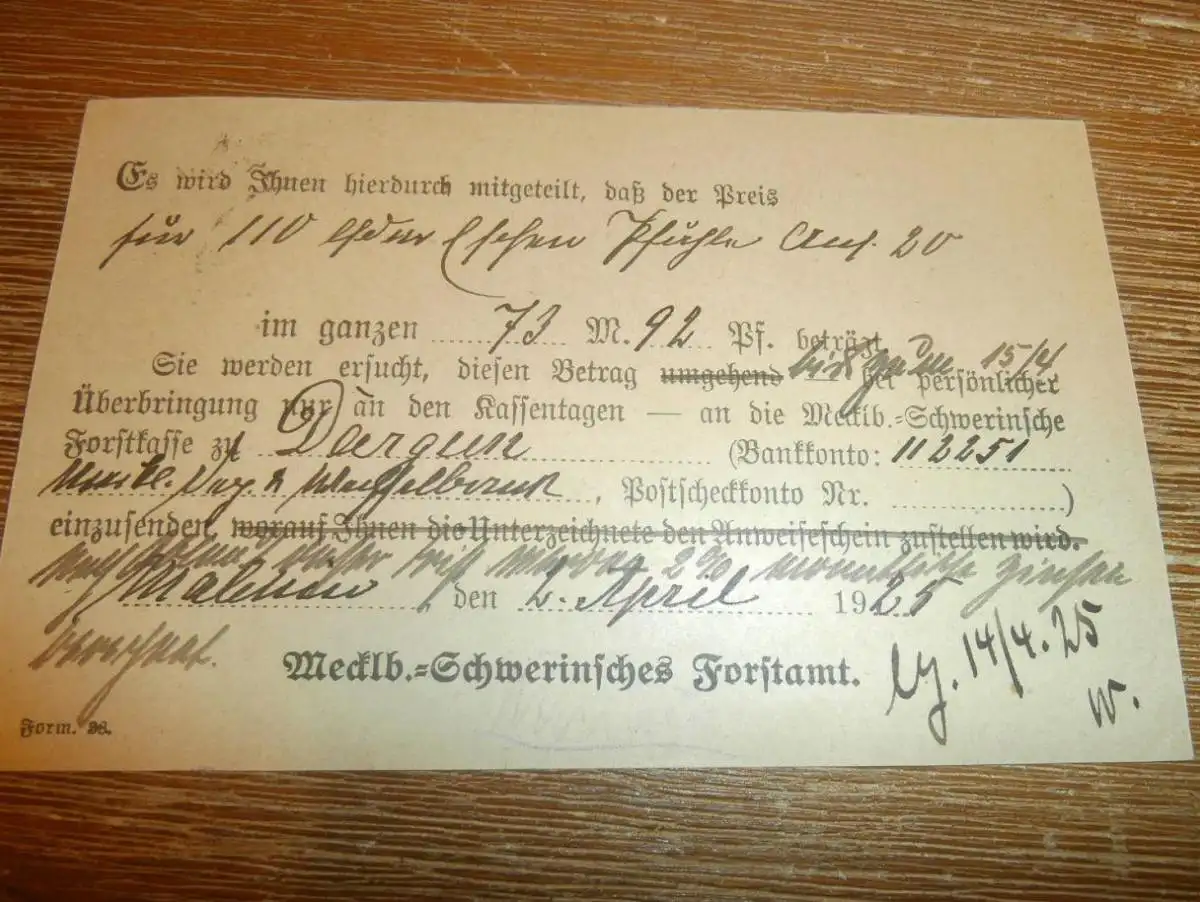 Es wird Ihnen hierdurch mitgeteilt, daß der Preis
für 110 Pfähle 20
im ganzen 73 M. 92 Pf. beträgt.
Sie werden ersucht, diesen Betrag umgehend bis zum 15/4 bei persönlicher
Überbringung nur an den Kassentagen — an die Mecklb.-Schwerinsche
Forstkasse zu Dargun (Bankkonto: 112251
Meckl. Hyp. & Wechselbank, Postscheckkonto Nr. )
einzusenden, worauf Ihnen die Unterzeichnete den Anweiseschein zustellen wird.
Nach dieser Frist werden 2% monatliche Zinsen
Malchin, den 2. April 1925
berechnet.
Mecklb.-Schwerinsches Forstamt.
14/4. 25
W.
Form. 28.